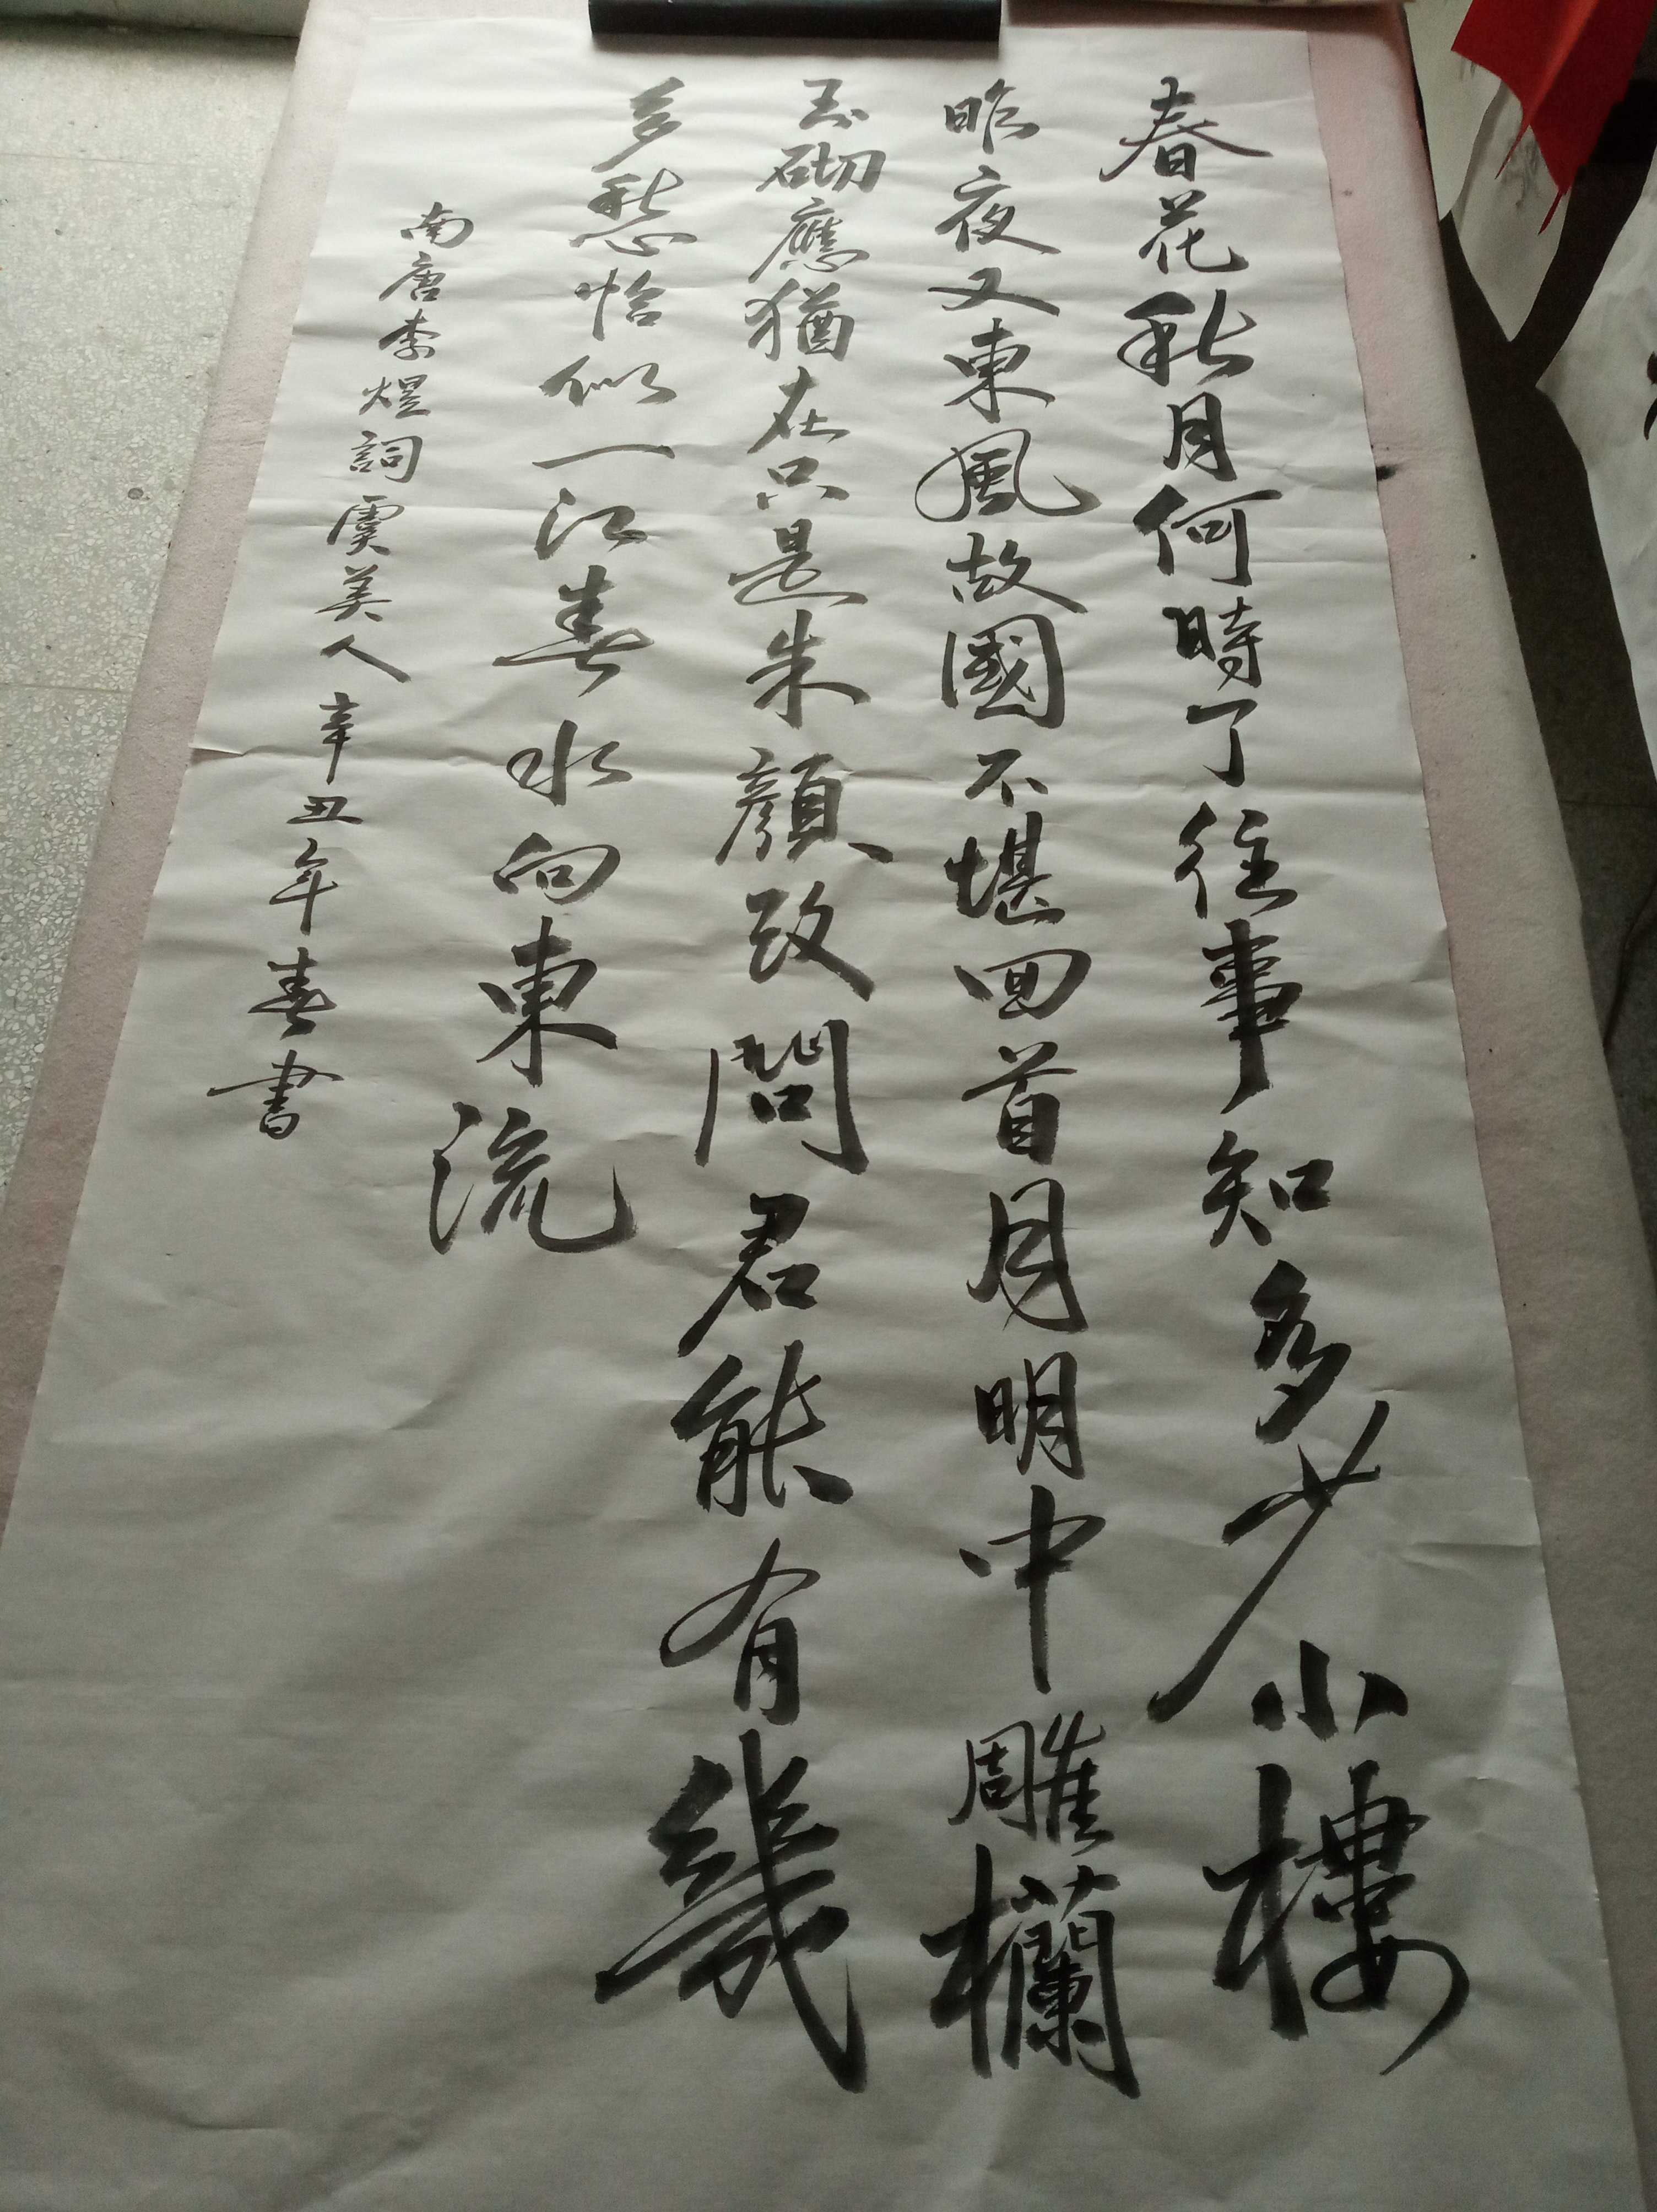 春花秋月何時了往事知多少小樓
昨夜又東風故國不堪回首月明中雕欄
玉砌應猶在只是朱顔改問君能有幾
多愁恰似一江春水向東流
南唐李煜詞虞美人辛丑年春書